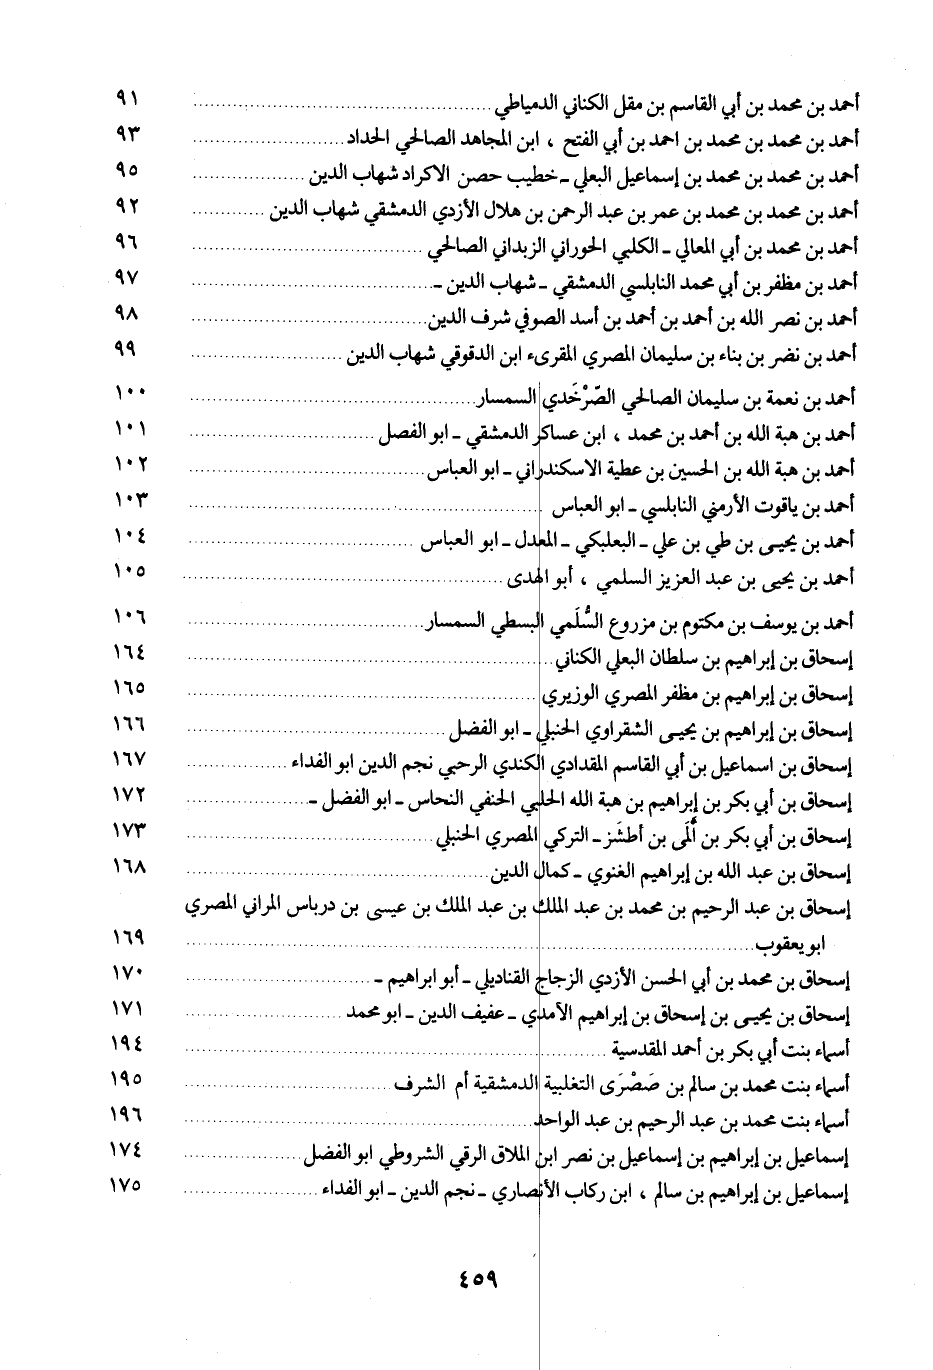 أحمد بن محمد بن أبي القاسم بن مقل الكناني الدمياطي ........ ٩١
أحمد بن محمد بن محمد بن احمد بن أبي الفتح ، ابن المجاهد الصالحي الحداد ........ ٩٣
أحمد بن محمد بن محمد بن إسماعيل البعلي ـ خطيب حصن الاكراد شهاب الدين ........ ٩٥
أحمد بن محمد بن محمد بن عمر بن عبد الرحمن بن هلال الأزدي الدمشقي شهاب الدين ........ ٩٢
أحمد بن محمد بن أبي المعالي ـ الكلبي الحوراني الزبداني الصالحي ........ ٩٦
أحمد بن مظفر بن أبي محمد النابلسي الدمشقي ـ شهاب الدين ـ ........ ٩٧
أحمد بن نصر الله بن أحمد بن أحمد بن أسد الصوفي شرف الدين ........ ٩٨
أحمد بن نضر بن بناء بن سليمان المصري المقرىء ابن الدقوقي شهاب الدين ........ ٩٩
أحمد بن نعمة بن سليمان الصالحي الصّرْخَدي السمسار ........ ١٠٠
أحمد بن هبة الله بن أحمد بن محمد ، ابن عساكر الدمشقي ـ ابو الفصل ........ ١٠١
أحمد بن هبة الله بن الحسين بن عطية الاسكندراني ـ ابو العباس ........ ١٠٢
أحمد بن ياقوت الأرمني النابلسي ـ ابو العباس ........ ١٠٣
أحمد بن يحيى بن طي بن علي ـ البعلبكي ـ المعدل ـ ابو العباس ........ ١٠٤
أحمد بن يحيى بن عبد العزيز السلمي ، أبو الهدى ........ ١٠٥
أحمد بن يوسف بن مكتوم بن مزروع السُّلَمي البسطي السمسار ........ ١٠٦
إسحاق بن إبراهيم بن سلطان البعلي الكناني ........ ١٦٤
إسحاق بن إبراهيم بن مظفر المصري الوزيري ........ ١٦٥
إسحاق بن إبراهيم بن يحيى الشقراوي الحنبلي ـ ابو الفضل ........ ١٦٦
إسحاق بن اسماعيل بن أبي القاسم المقدادي الكندي الرحبي نجم الدين ابو الفداء ........ ١٦٧
إسحاق بن أبي بكر بن إبراهيم بن هبة الله الحلبي الحنفي النحاس ـ ابو الفضل ـ ........ ١٧٢
إسحاق بن أبي بكر بن أَلَمى بن أطسَز ـ التركي المصري الحنبلي ........ ١٧٣
إسحاق بن عبد الله بن إبراهيم الغنوي ـ كمال الدين ........ ١٦٨
إسحاق بن عبد الرحيم بن محمد بن عبد الملك بن عبد الملك بن عيسى بن درباس المراني المصري
ابو يعقوب ........ ١٦٩
إسحاق بن محمد بن أبي الحسن الأزدي الزجاج القناديلي ـ أبو ابراهيم ـ ........ ١٧٠
إسحاق بن يحيى بن إسحاق بن إبراهيم الآمدي ـ عفيف الدين ـ ابو محمد ........ ١٧١
أسماء بنت أبي بكر بن أحمد المقدسية ........ ١٩٤
أسماء بنت محمد بن سالم بن صَصْرَى التغلبية الدمشقية أم الشرف ........ ١٩٥
أسماء بنت محمد بن عبد الرحيم بن عبد الواحد ........ ١٩٦
إسماعيل بن إبراهيم بن إسماعيل بن نصر ابن الملاق الرقي الشروطي ابو الفضل ........ ١٧٤
إسماعيل بن إبراهيم بن سالم ، ابن ركاب الأنصاري ـ نجم الدين ـ ابو الفداء ........ ١٧٥
٤٥٩